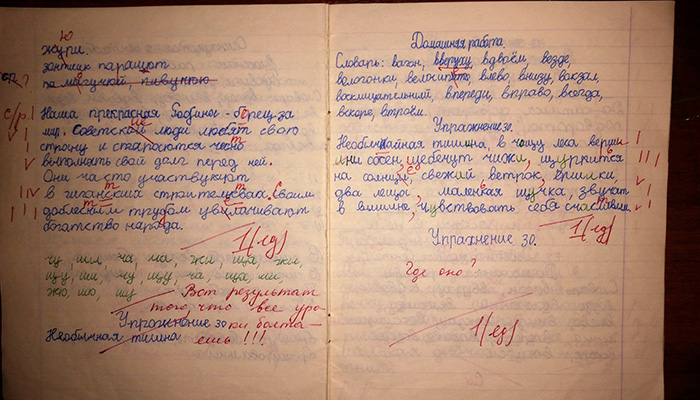 жури.
зонтик парашют
Наша прекрасная Родина - борец за
мир. Советской люди любят свою
строну и стараются чесно
выполнять свой долг перед ней.
Они часто участвуют
в гиганских строительствах. Своим
доблесным трудом увиласивают
богатство народа.
1(ед)
чу, ши, ча, ча, жи, ща, жи,
щу, ши, чу, щу, ча, ща, ши,
жи, ши, щу Вот результат
того, что все уро-
Упражнение 30 ки болта-
Необычная тишина ешь!!!
Домашняя работа
Словарь: вагон, вверху, вдвоём, везде,
вологонки, велосипет, влево, внизу, вокзал,
восклицательный, впереди, вправо, всегда,
вскоре, втроём.
Упражнение 30.
Необычайная тишина, в чащу лека
щебечут чижи,
на солнци, свежий ветрок, ёршики
два леща, маленкая щучка, звучат
в тишине, чувствовать себа
1(ед)
Упражнение 30.
Где оно?
1(ед)